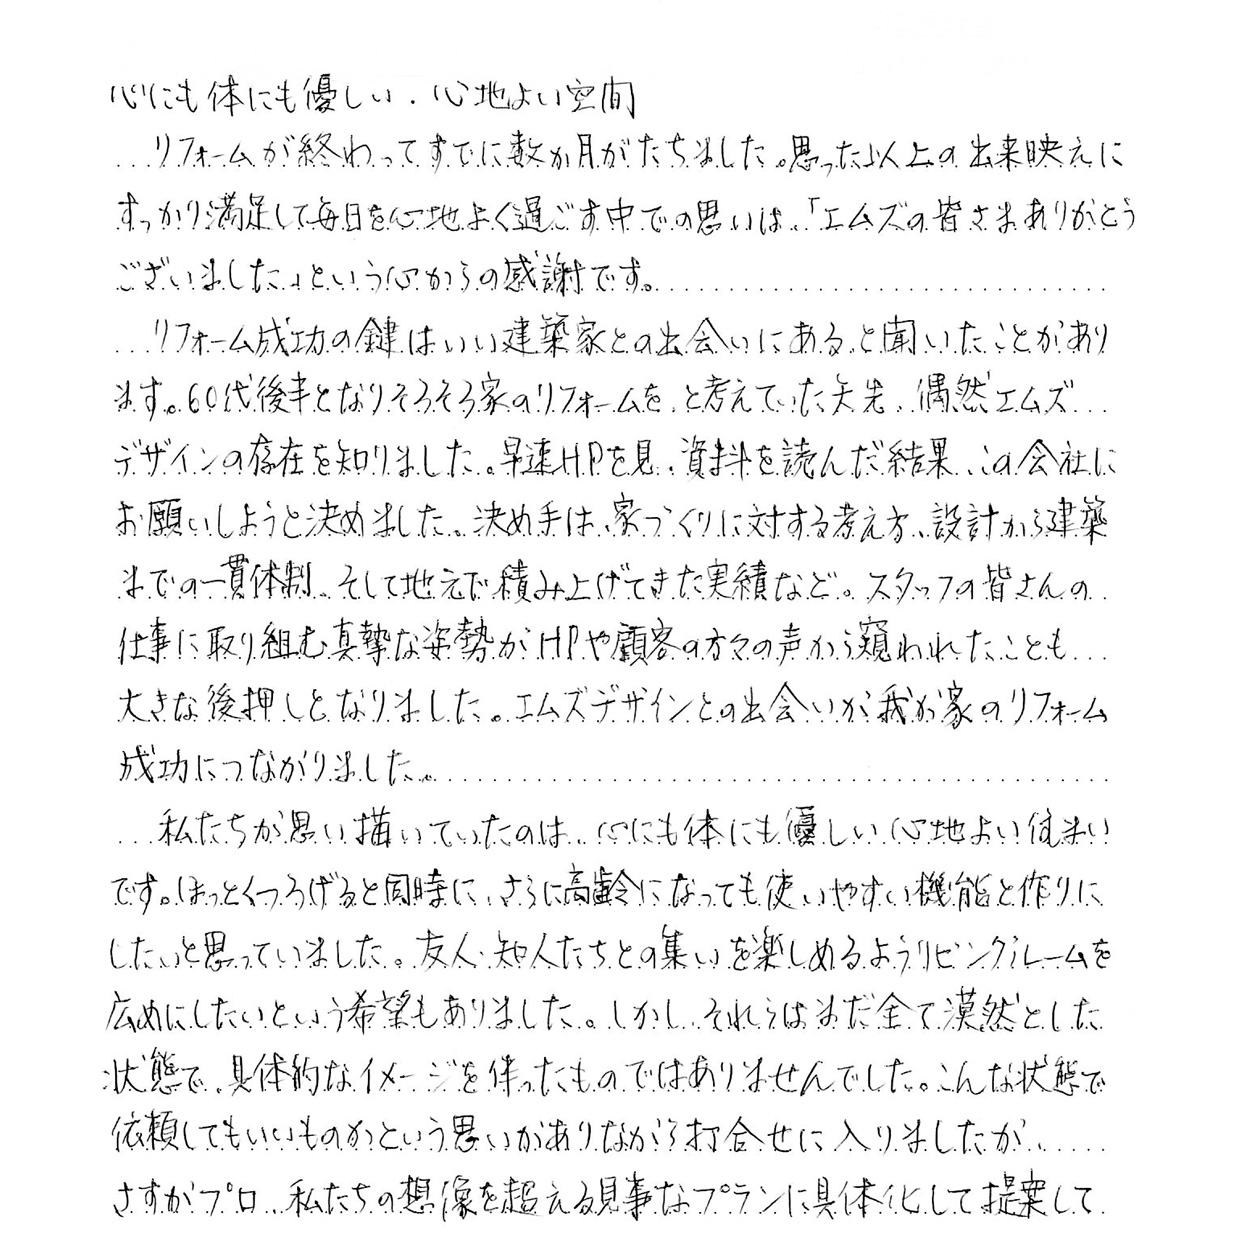 心にも体にも優しい、心地よい空間
リフォームが終わってすでに数か月がたちました。思った以上の出来映えに
すっかり満足して毎日を心地よく過ごす中での思いは、「エムズの皆さまありがとう
ございました」という心からの感謝です。
リフォーム成功の鍵はいい建築家との出会いにあると聞いたことがあり
ます。60代後半となりそろそろ家のリフォームを、と考えていた矢先、偶然エムズ
デザインの存在を知りました。早速HPを見、資料を読んだ結果、この会社に
お願いしようと決めました。決め手は、家づくりに対する考え方、設計から建築
までの一貫体制、そして地元で積み上げてきた実績など。スタッフの皆さんの
仕事に取り組む真摯な姿勢がHPや顧客の方々の声から窺われたことも
大きな後押しとなりました。エムズデザインとの出会いが我が家のリフォーム
成功につながりました。
私たちが思い描いていたのは、心にも体にも優しい心地よい住まい
です。ほっとくつろげると同時に、さらに高齢になっても使いやすい機能と作りに
したいと思っていました。友人・知人たちとの集いを楽しめるようリビングルームを
広めにしたいという希望もありました。しかし、それらはまだ全て漠然とした
状態で、具体的なイメージを伴ったものではありませんでした。こんな状態で
依頼してもいいものかという思いがありながら打合せに入りましたが、
さすがプロ、私たちの想像を超える見事なプランに具体化して提案して